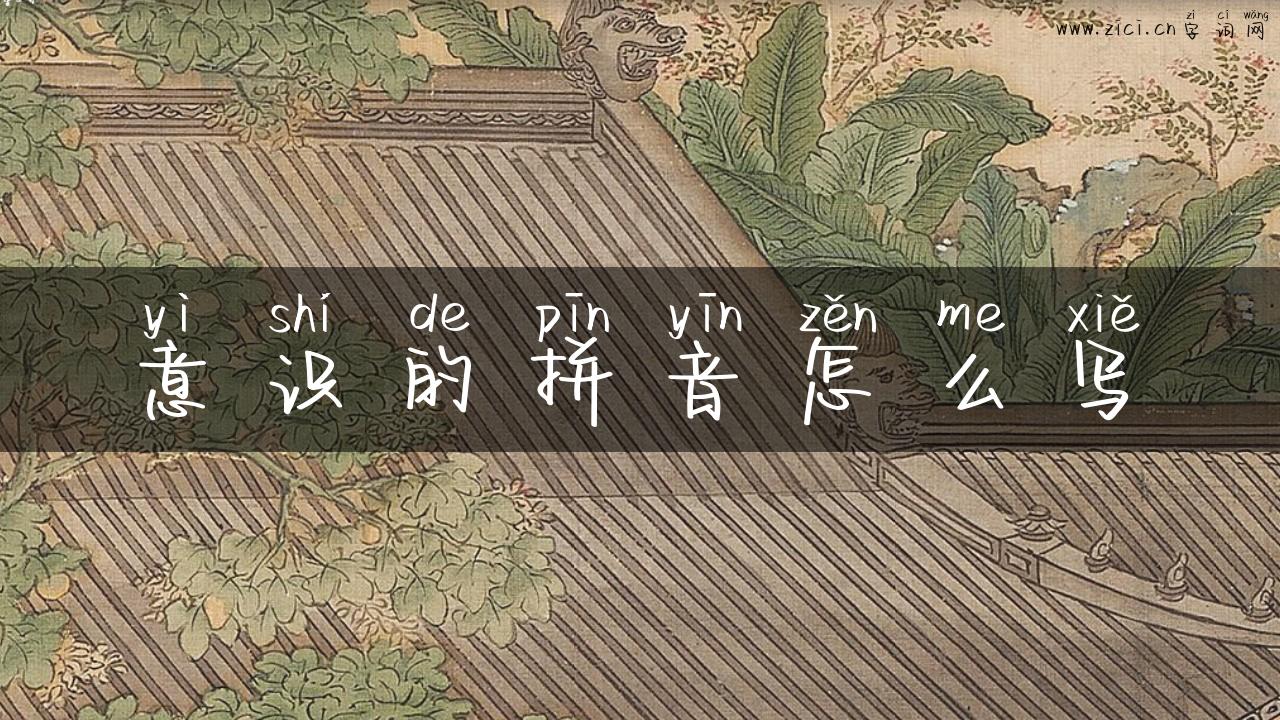 zì cí wǎng
www.zici.cn 字词网
yì shí de pīn yīn zěn me xiě
意识的拼音怎么写